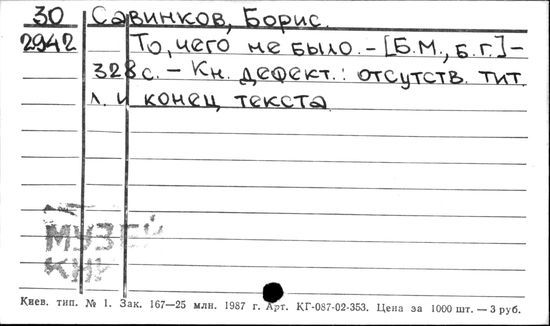 30 Савинков, Борис.
2942 То, чего не было. – [Б.М., б.г.] –
328 с. – Кн. дефект.: отсутств. тит.
л. и конец текста
МУЗЕЙ
КНИ
Киев. тип. № 1. Зак. 167—25 млн. 1987 г. Арт. КГ-087-02-353. Цена за 1000 шт. — 3 руб.